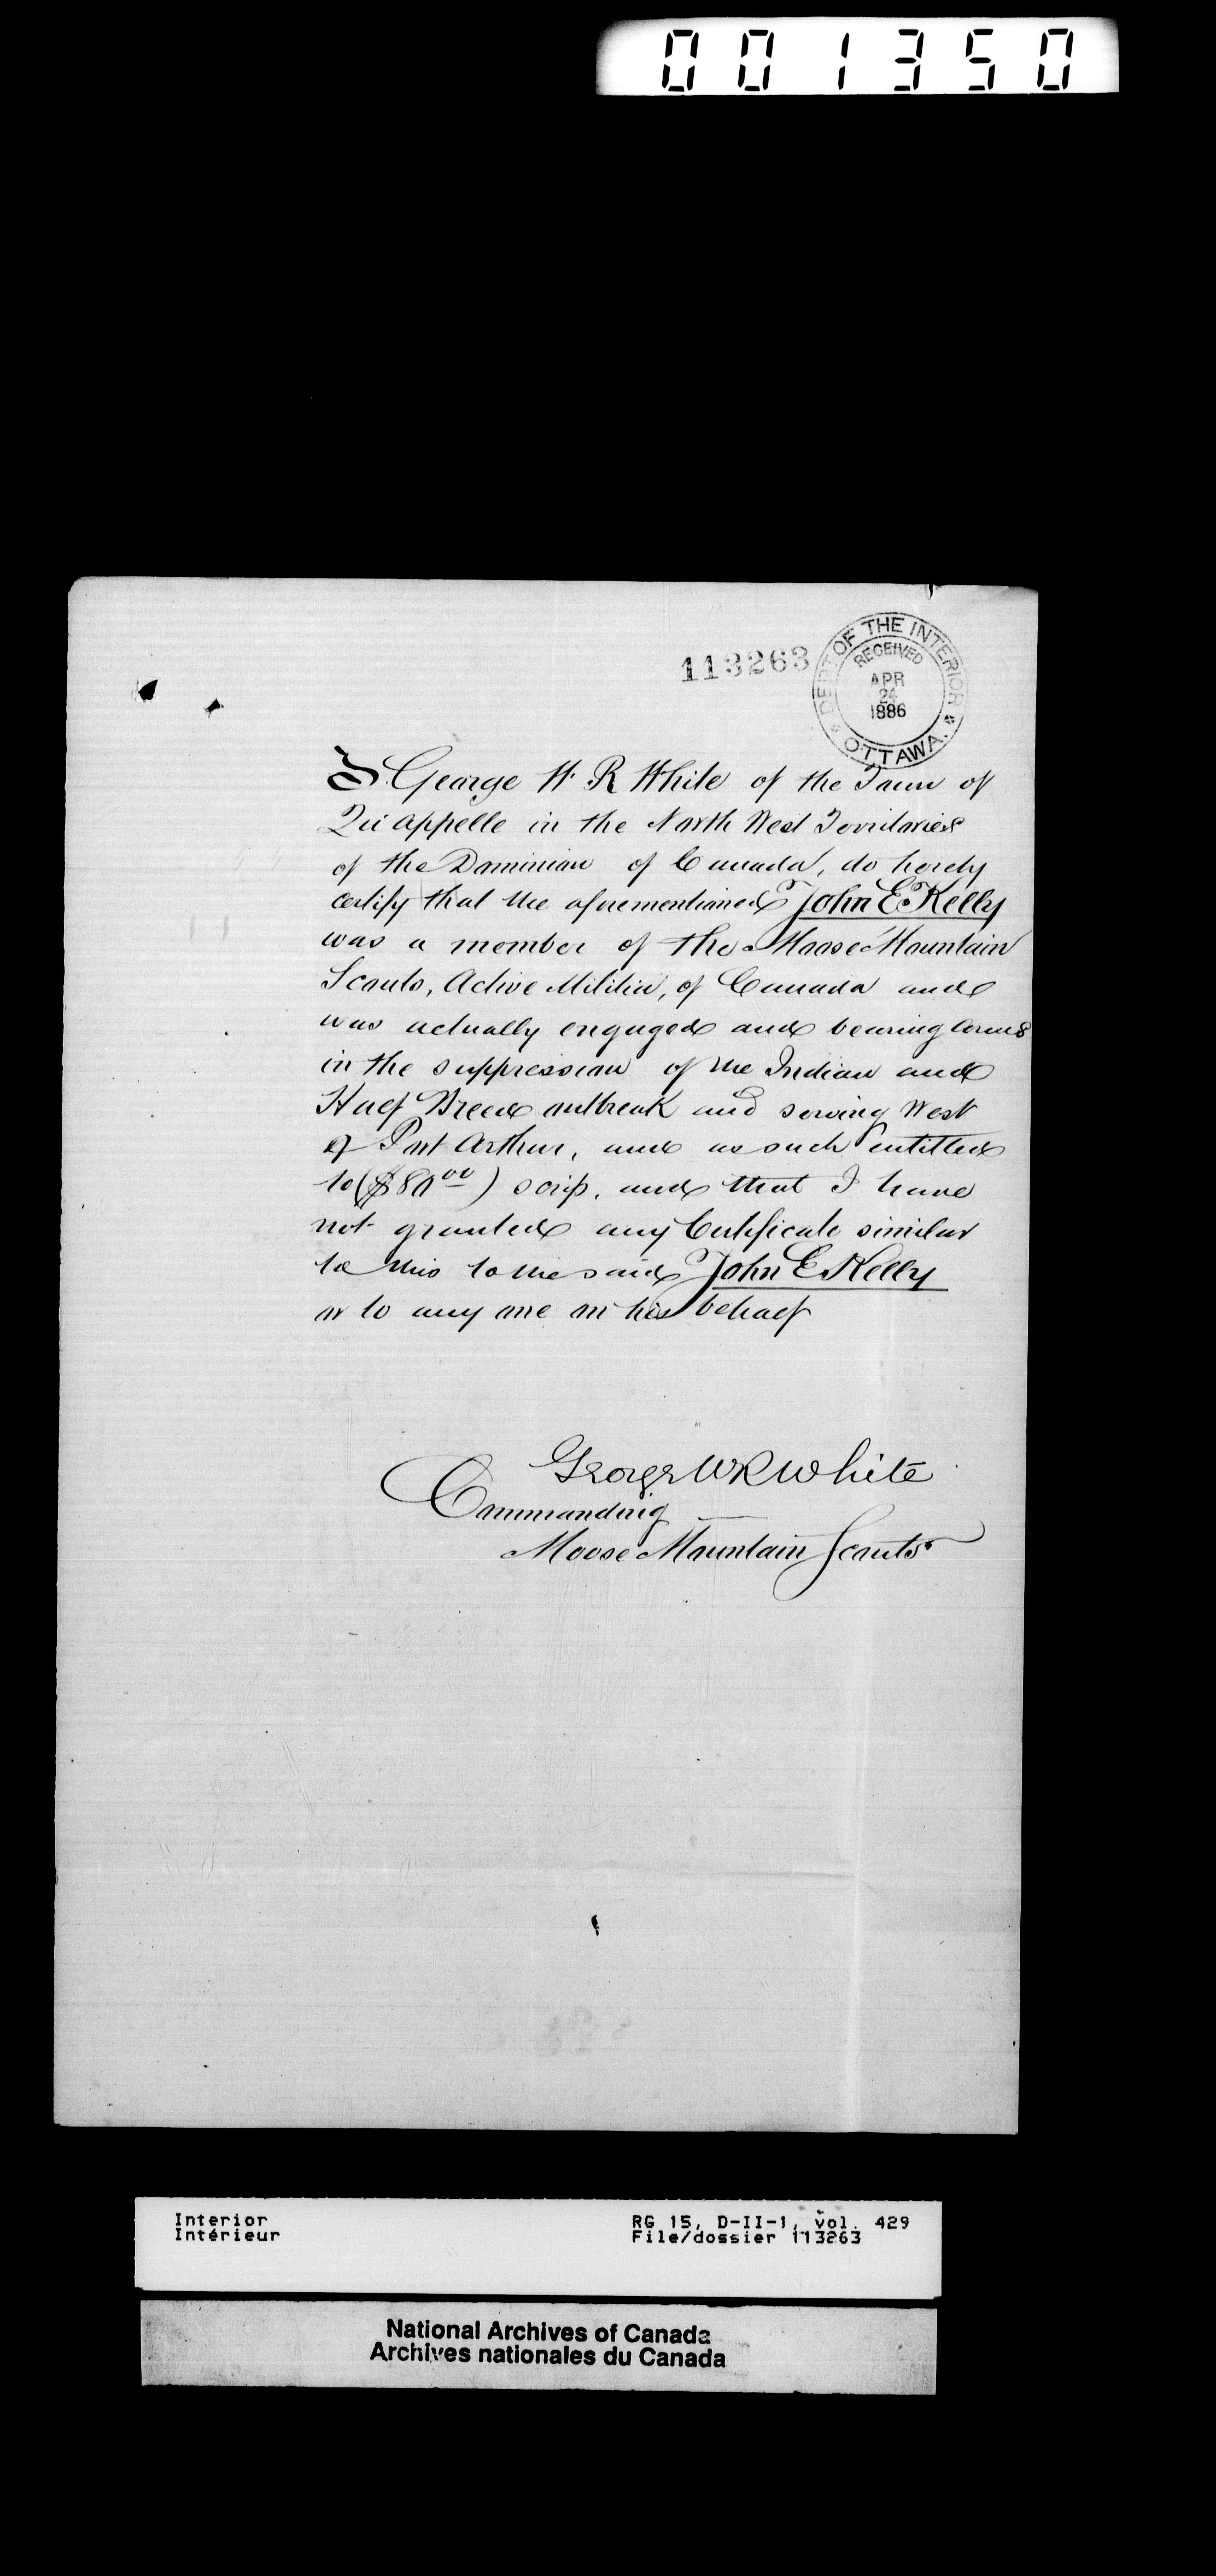 001350
113263
DEPT. OF THE INTERIOR
RECEIVED
APR
24
1886
OTTAWA.
I George W. R White of the Town of
Qu'appelle in the North West Territories
of the Dominion of Canada, do hereby
certify that the aforementioned John E. Kelly
was a member of the Moose Mountain
Scouts, Active Militia, of Canada and
was actually engaged and bearing arms
in the suppression of the Indian and
Half Breed outbreak and serving West
of Port Arthur, and as such entitled
to ($80 00) scrip, and that I have
not granted any Certificate similar
to this to the said John E. Kelly
or to any one on his behalf
George W R White
Commanding
Moose Mountain Scouts
Interior
Intérieur
RG 15, D-II-1, vol. 429
File/dossier 113263
National Archives of Canada
Archives nationales du Canada